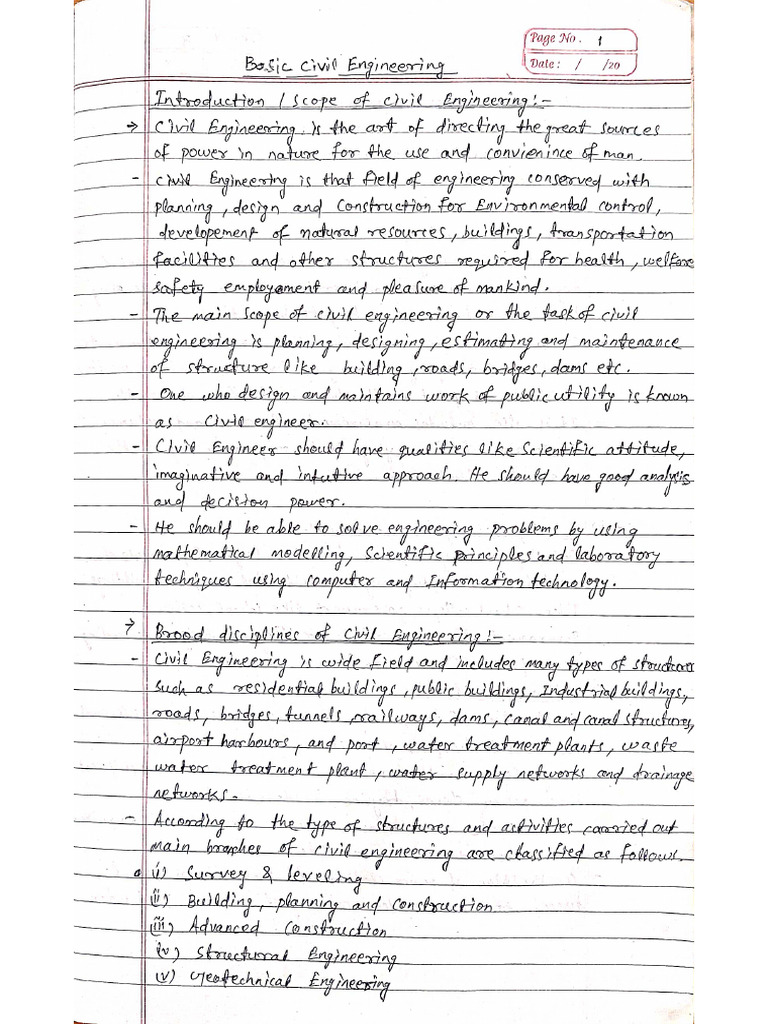 Page No. 1
Date: / /20
Basic Civil Engineering
Introduction / Scope of Civil Engineering:-
→ Civil Engineering is the art of directing the great sources
of power in nature for the use and convienince of man.
- Civil Engineering is that field of engineering conserved with
planning, design and Construction for Environmental control,
developement of natural resources, buildings, transportation
facilities and other structures required for health, welfare
safety employement and pleasure of mankind.
- The main scope of civil engineering or the task of civil
engineering is planning, designing, estimating and maintenance
of structure like building, roads, bridges, dams etc.
- One who design and maintains work of public utility is known
as Civil engineer.
- Civil Engineer should have qualities like Scientific attitude,
imaginative and intutive approach. He should have good analysis
and decision power.
- He should be able to solve engineering problems by using
mathematical modelling, Scientific principles and laboratory
techniques using computer and Information technology.
→ Broad disciplines of Civil Engineering:-
- Civil Engineering is wide field and includes many types of structures
such as residential buildings, public buildings, Industrial buildings,
roads, bridges, tunnels, railways, dams, canal and canal structures,
airport harbours, and port, water treatment plants, waste
water treatment plant, water supply networks and drainage
networks.
- According to the type of structures and activities carried out
main braches of civil engineering are classified as follows.
i) Survey & leveling
ii) Building, planning and construction
iii) Advanced Construction
iv) Structural Engineering
v) Geotechnical Engineering